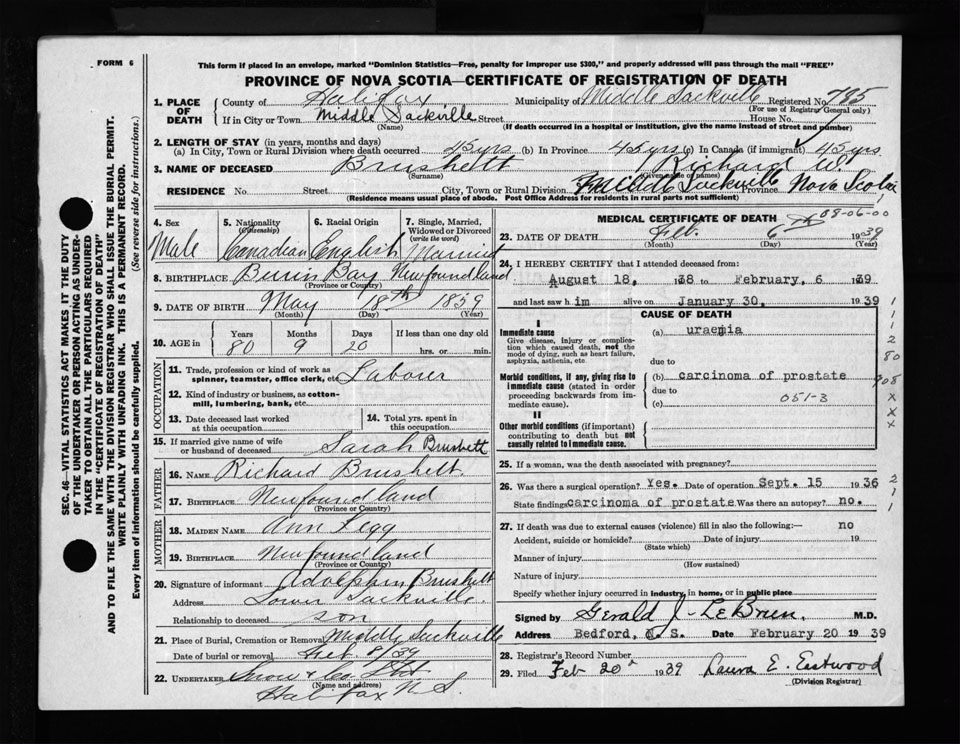 FORM 6
This form if placed in an envelope, marked "Dominion Statistics—Free, penalty for improper use $300," and properly addressed will pass through the mail "FREE"
PROVINCE OF NOVA SCOTIA—CERTIFICATE OF REGISTRATION OF DEATH
SEC. 46—VITAL STATISTICS ACT MAKES IT THE DUTY
OF THE UNDERTAKER OR PERSON ACTING AS UNDER-
TAKER TO OBTAIN ALL THE PARTICULARS REQUIRED
IN THE "CERTIFICATE OF REGISTRATION OF DEATH"
AND TO FILE THE SAME WITH THE DIVISION REGISTRAR WHO SHALL ISSUE THE BURIAL PERMIT.
WRITE PLAINLY WITH UNFADING INK. THIS IS A PERMANENT RECORD.
Every item of information should be carefully supplied. (See reverse side for instructions.)
1. PLACE OF DEATH
County of Halifax Municipality of Middle Sackville Registered No. 795
(For use of Registrar General only)
If in City or Town Middle Sackville Street House No.
(Name) (If death occurred in a hospital or institution, give the name instead of street and number)
2. LENGTH OF STAY (in years, months and days)
(a) In City, Town or Rural Division where death occurred 45 yrs (b) In Province 45 yrs (c) In Canada (if immigrant) 45 yrs
3. NAME OF DECEASED Brushett Richard W.
(Surname) (Given names or names)
RESIDENCE No. Street City, Town or Rural Division Middle Sackville Province Nova Scotia
(Residence means usual place of abode. Post Office Address for residents in rural parts not sufficient)
4. Sex 5. Nationality (Citizenship) 6. Racial Origin 7. Single, Married, Widowed or Divorced (write the word)
Male Canadian English Married
8. BIRTHPLACE Burin Bay Newfoundland
(Province or County)
9. DATE OF BIRTH May 18th 1859
(Month) (Day) (Year)
10. AGE in Years Months Days If less than one day old
80 9 20 hrs. or min.
OCCUPATION
11. Trade, profession or kind of work as spinner, teamster, office clerk, etc. Laborer
12. Kind of industry or business, as cotton-mill, lumbering, bank, etc.
13. Date deceased last worked at this occupation
14. Total yrs. spent in this occupation
15. If married give name of wife or husband of deceased Sarah Brushett
FATHER
16. NAME Richard Brushett
17. BIRTHPLACE Newfoundland
(Province or County)
MOTHER
18. MAIDEN NAME Ann
19. BIRTHPLACE Newfoundland
(Province or County)
20. Signature of informant Adolphin Brushett
Address Lower Sackville.
Relationship to deceased son
21. Place of Burial, Cremation or Removal Middle Sackville
Date of burial or removal Feb. 8/39
22. UNDERTAKER Snow & Co Ltd
(Name and address)
Halifax N S.
MEDICAL CERTIFICATE OF DEATH 08-06-00
23. DATE OF DEATH Feb. 6 1939
(Month) (Day) (Year)
24. I HEREBY CERTIFY that I attended deceased from:
August 18, 1938 to February, 6 1939
and last saw him alive on January 30, 1939
CAUSE OF DEATH
I
Immediate cause
Give disease, injury or complication which caused death, not the mode of dying, such as heart failure, asphyxia, asthenia, etc
(a) uraemia
due to
Morbid conditions, if any, giving rise to immediate cause (stated in order proceeding backwards from immediate cause).
(b) carcinoma of prostate
due to
(c) 051-3
II
Other morbid conditions (if important) contributing to death but not causally related to immediate cause.
25. If a woman, was the death associated with pregnancy?
26. Was there a surgical operation? Yes. Date of operation Sept. 15 1936
State findings carcinoma of prostate Was there an autopsy? no.
27. If death was due to external causes (violence) fill in also the following:— no
Accident, suicide or homicide? Date of injury 19
(State which)
Manner of injury
(How sustained)
Nature of injury
Specify whether injury occurred in industry, in home, or in public place
Signed by Gerald J. LeBrun, M.D.
Address Bedford, N. S. Date February 20 1939
28. Registrar's Record Number
29. Filed Feb 20 1939 Laura E. Eastwood
(Division Registrar)